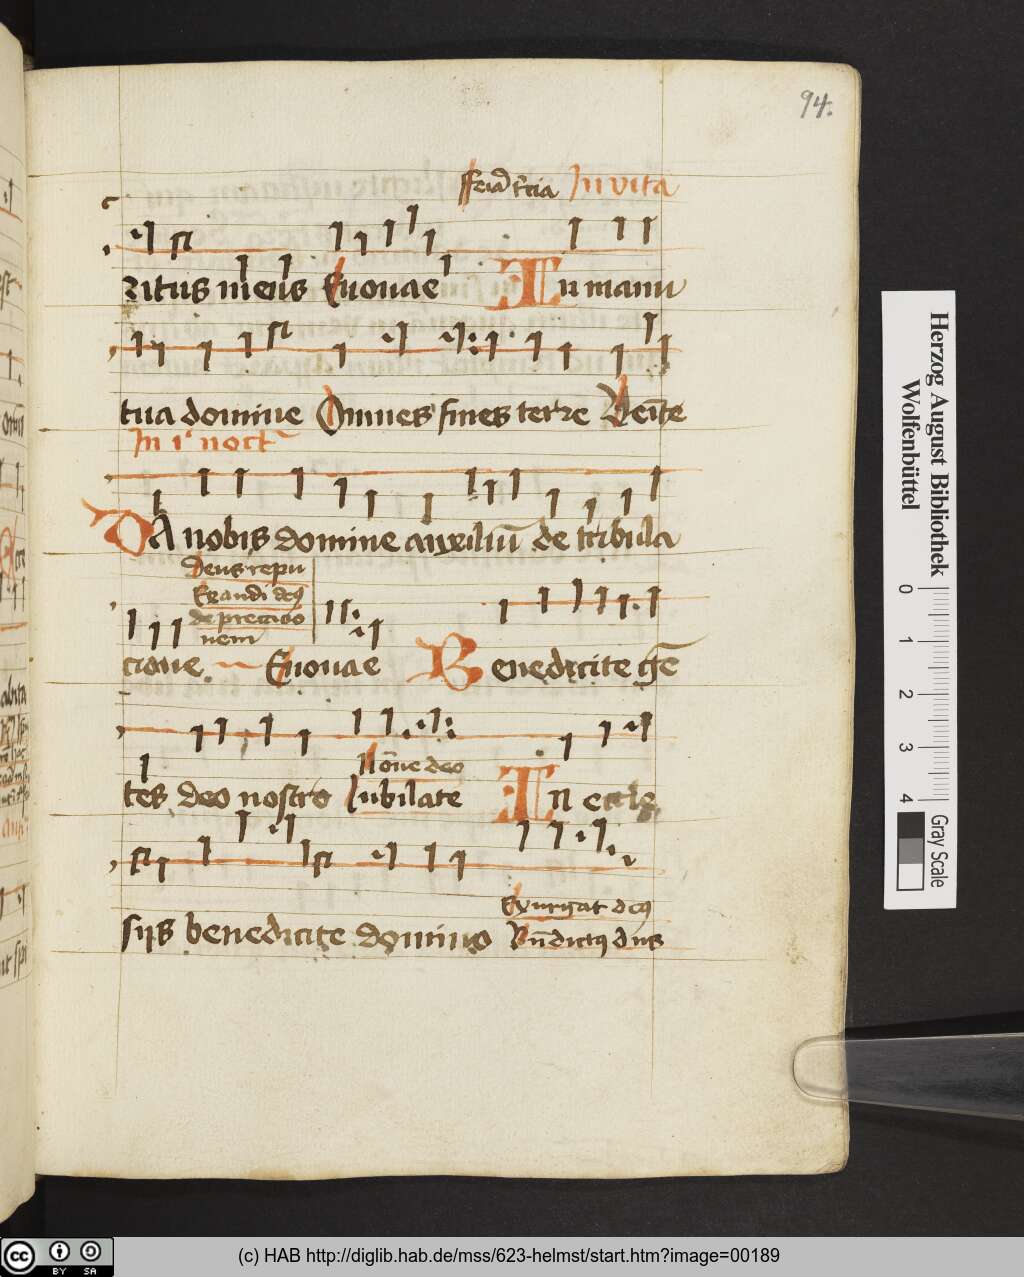 94.
Feria tercia Invita
ritus meus Evovae In manu
tua domine Omnes fines terre Venite
In i noct
DA nobis domine auxiliū de tribula
Deus repu
Exaudi deus
deprecatio
nem
cione Evovae Benedicite gē
tes deo nostro Iubilate In eccle
Bone deo
sijs benedicite domino
Exurgat deus
Bn̄dictus dn̄s
Herzog August Bibliothek
Wolfenbüttel
0 1 2 3 4
Gray Scale
cc BY SA
(c) HAB http://diglib.hab.de/mss/623-helmst/start.htm?image=00189